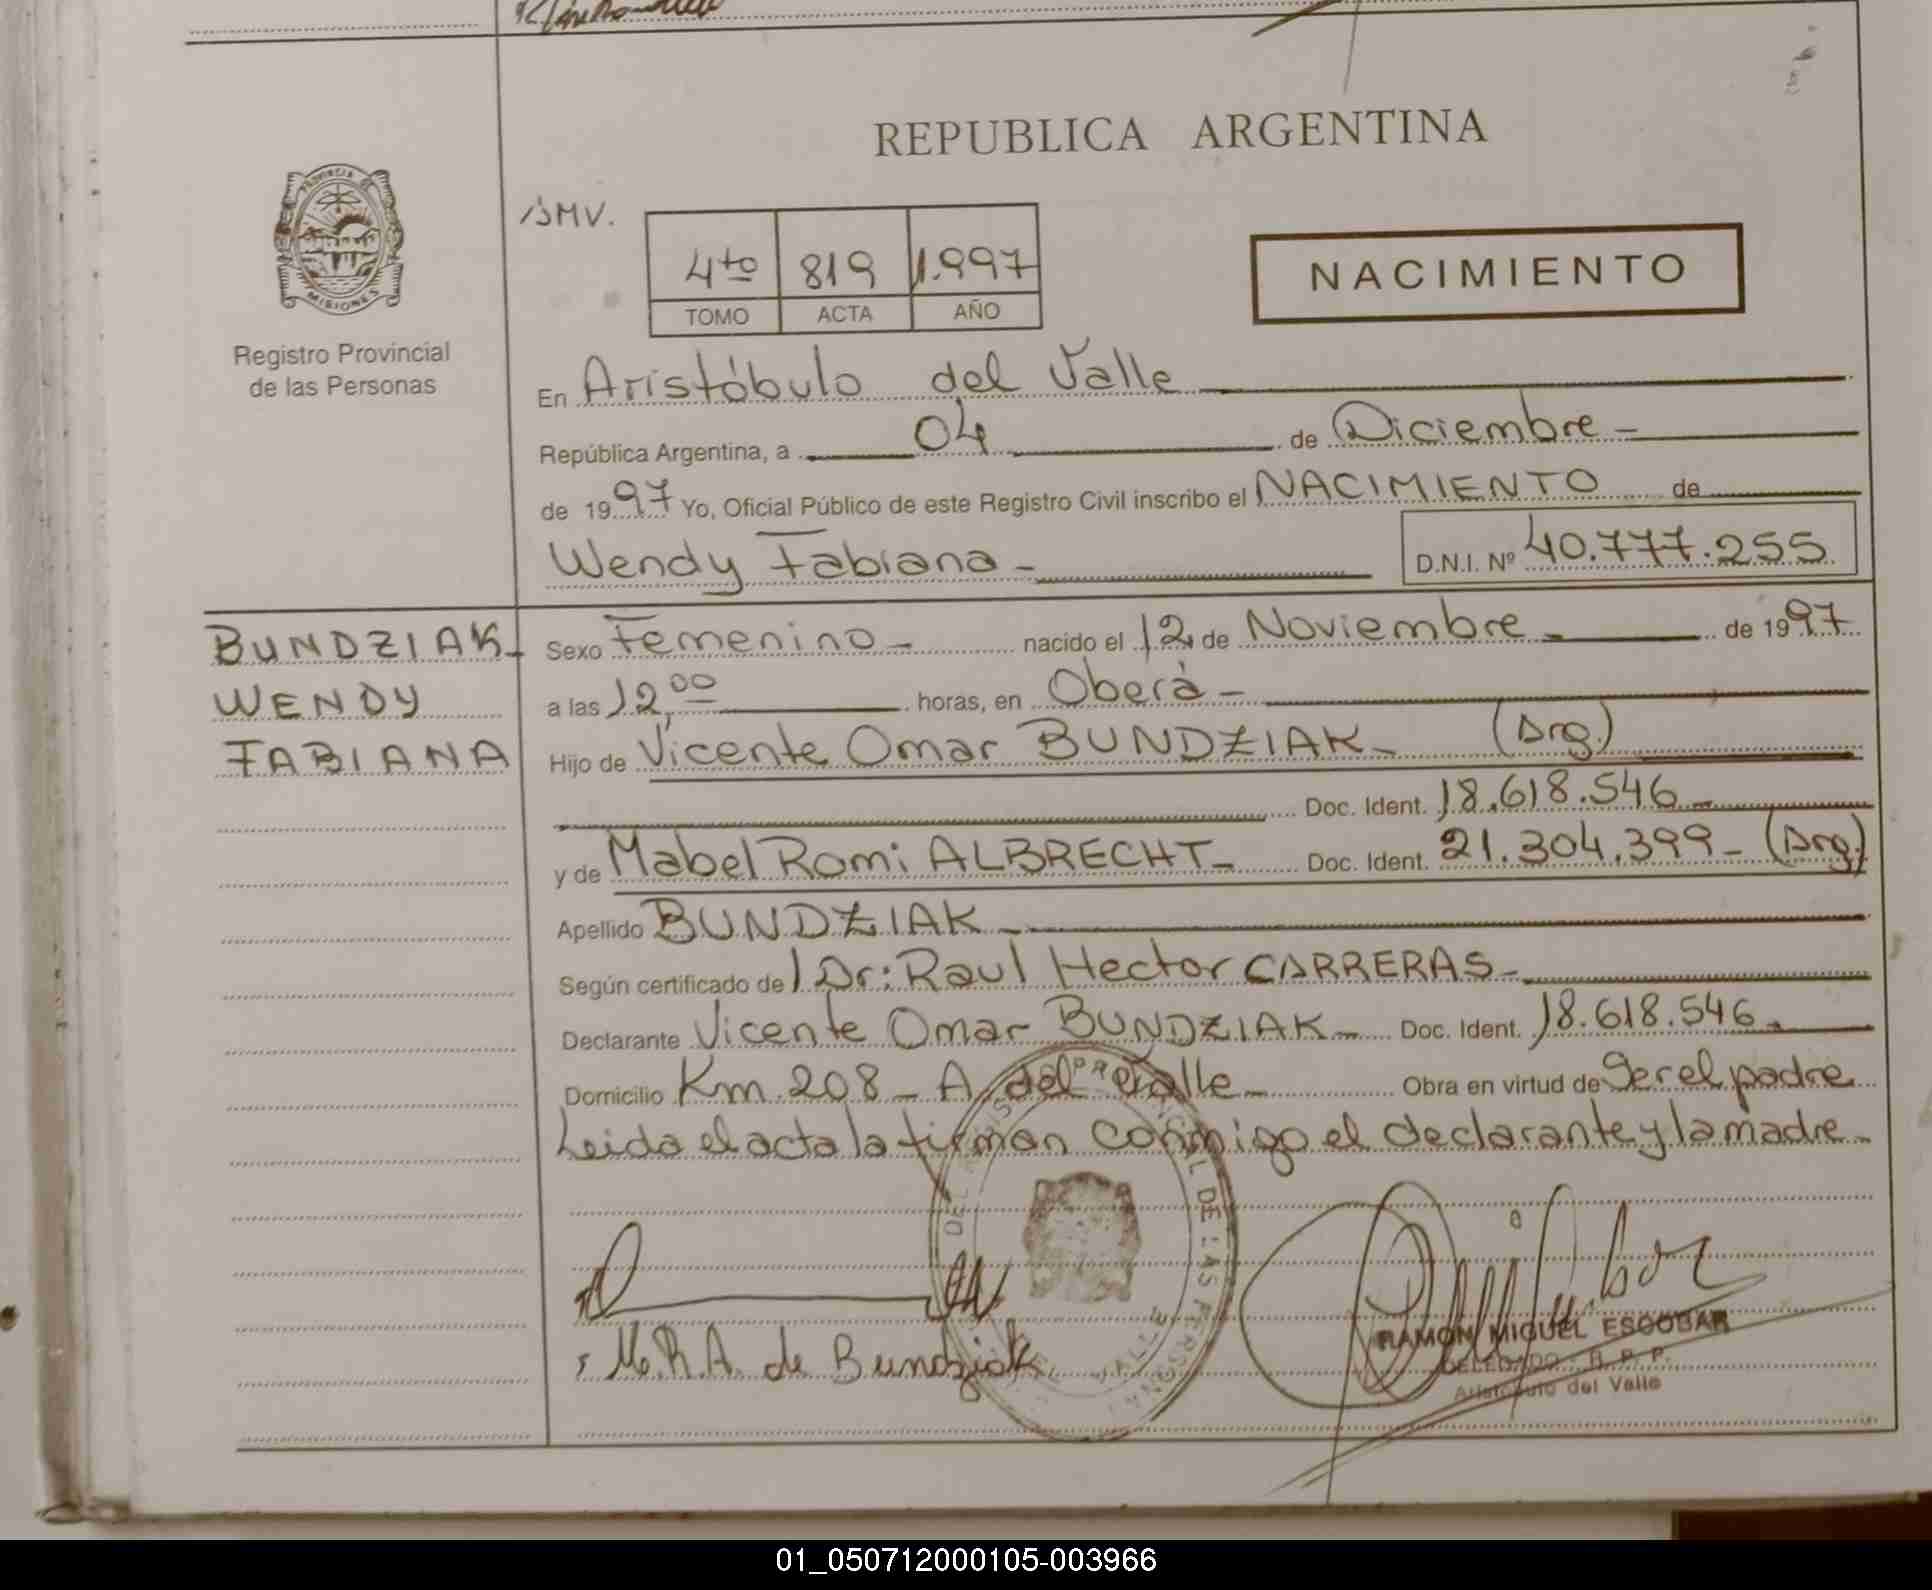 REPUBLICA ARGENTINA
PROVINCIA DE
MISIONES
Registro Provincial
de las Personas
SMV.
4to 819 1.997
TOMO ACTA AÑO
NACIMIENTO
En Aristóbulo del Valle
República Argentina, a 04 de Diciembre
de 1997 Yo, Oficial Público de este Registro Civil inscribo el NACIMIENTO de
Wendy Fabiana D.N.I. Nº 40.777.255
BUNDZIAK
WENDY
FABIANA
Sexo Femenino nacido el 12 de Noviembre de 1997
a las 12,00 horas, en Oberá
Hijo de Vicente Omar BUNDZIAK (Arg.)
Doc. Ident. 18.618.546
y de Mabel Romi ALBRECHT Doc. Ident. 21.304.399 (Arg.)
Apellido BUNDZIAK
Según certificado de l Dr: Raul Hector CARRERAS
Declarante Vicente Omar BUNDZIAK Doc. Ident. 18.618.546
Domicilio Km 208 - A. del Valle Obra en virtud de Ser el padre
Leida el acta la firman conmigo el declarante y la madre
M.R.A. de Bundziak
RAMON MIGUEL ESCOBAR
DELEGADO - R. P. P.
Aristóbulo del Valle
01_050712000105-003966